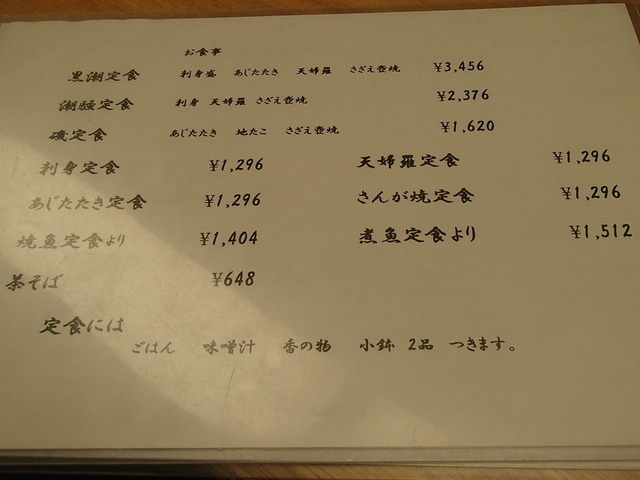 お食事
黒潮定食 刺身盛 あじたたき 天婦羅 さざえ壺焼 ¥3,456
潮騒定食 刺身 天婦羅 さざえ壺焼 ¥2,376
磯定食 あじたたき 地たこ さざえ壺焼 ¥1,620
刺身定食 ¥1,296 天婦羅定食 ¥1,296
あじたたき定食 ¥1,296 さんが焼定食 ¥1,296
焼魚定食より ¥1,404 煮魚定食より ¥1,512
茶そば ¥648
定食には
ごはん 味噌汁 香の物 小鉢 2品 つきます。